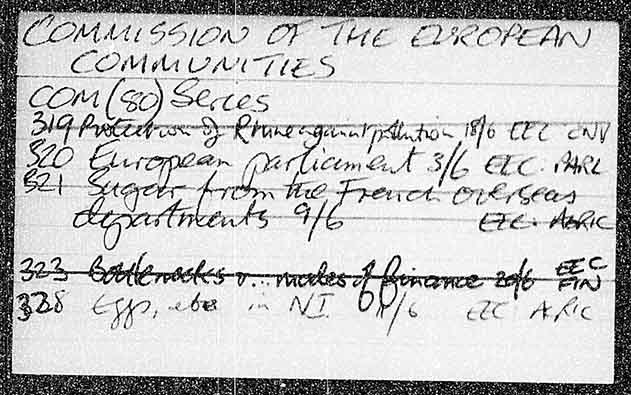 COMMISSION OF THE EUROPEAN
COMMUNITIES
COM (80) Series
319 Protection of Rhine against pollution 18/6 EEC ENV
320 European parliament 3/6 EEC. PARL
321 Sugar from the French overseas
departments 9/6 EEC. AGRIC
323 Bottlenecks & ... modes of finance 20/6 EEC
FIN
328 Eggs, etc in NI /6 EEC AGRIC